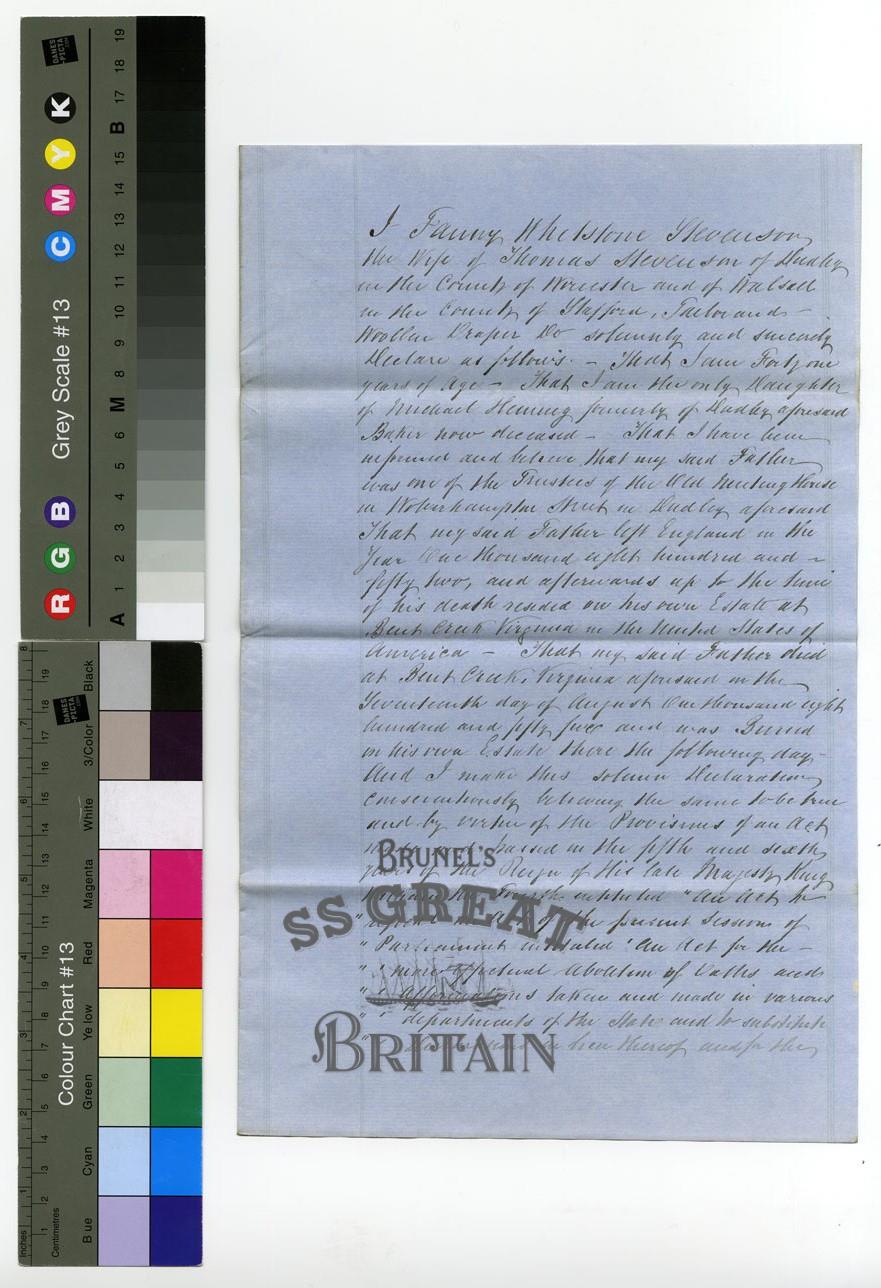 DANES
-PICTA
.COM
Grey Scale #13
R G B C M Y K
A 1 2 3 4 5 6 M 8 9 10 11 12 13 14 15 B 17 18 19
Colour Chart #13
DANES
-PICTA
.COM
Blue Cyan Green Yellow Red Magenta White 3/Color Black
Inches 1 2 3 4 5 6 7 8
Centimetres 1 2 3 4 5 6 7 8 9 10 11 12 13 14 15 16 17 18 19
I Fanny Whetstone Stevenson
the Wife of Thomas Stevenson of Dudley
in the County of Worcester and of Walsall
in the County of Stafford, Tailor and -
Woollen Draper Do solemnly and sincerely
Declare as follows. - That I am Forty one
years of Age - That I am the only Daughter
of Michael Fleming formerly of Dudley aforesaid
Baker now deceased - That I have been
informed and believe that my said Father
was one of the Trustees of the Old Meeting House
in Wolverhampton Street in Dudley aforesaid
That my said Father left England in the
Year One thousand eight hundred and -
fifty two, and afterwards up to the time
of his death resided on his own Estate at
Bent Creek Virginia in the United States of
America - That my said Father died
at Bent Creek, Virginia aforesaid on the
Seventeenth day of August One thousand eight
hundred and fifty five and was Buried
on his own Estate there the following day -
And I make this solemn Declaration
conscientiously believing the same to be true
and by virtue of the Provisions of an Act
made and passed in the fifth and sixth
years of the Reign of His late Majesty King
William the Fourth intituled "An Act to
" repeal an Act of the present Session of
" Parliament intituled 'An Act for the -
" ' more effectual Abolition of Oaths and
" ' Affirmations taken and made in various
" ' departments of the State and to substitute
" ' Declarations in lieu thereof and for the
BRUNEL'S
SS GREAT
BRITAIN